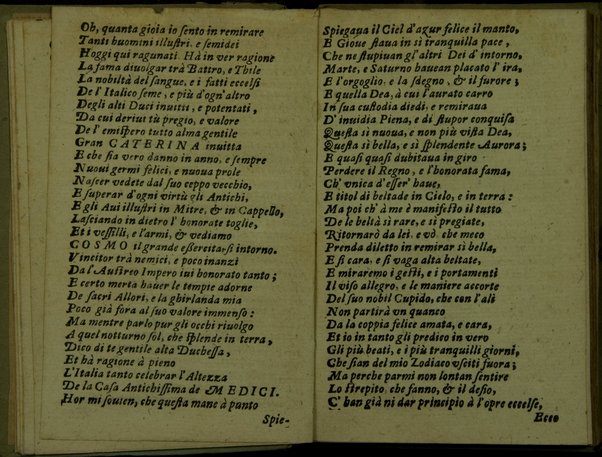 Oh, quanta gioia io sento in remirare
Tanti huomini illustri, e semidei
Hoggi qui ragunati. Hà in ver ragione
La fama divolgar trà Battro, e Thile
La nobiltà del sangue, e i fatti eccelsi
De l'Italico seme, e più d'ogn'altro
Degli alti Duci inuitti, e potentati,
Da cui deriui tù pregio, e valore
De l'emispero tutto alma gentile
Gran CATERINA inuitta
E che sia vero danno in anno, e sempre
Nuoui germi felici, e nuoua prole
Nascer vedete dal suo ceppo vecchio,
E superar d'ogni virtù gli Antichi,
E gli Aui illustri in Mitre, & in Cappello,
Lasciando in dietro l'honorate toglie,
Et i vessilli, e l'armi, & vediamo
COSMO il grande essercitarsi intorno.
Vincitor trà nemici, e poco inanzi
Da l'Austreo Impero iui honorato tanto;
E certo merta hauer le tempie adorne
De sacri Allori, e la ghirlanda mia
Poco già fora al suo valore immenso:
Ma mentre parlo pur gli occhi riuolgo
A quel notturno sol, che splende in terra,
Dico di te gentile alta Duchessa,
Et hà ragione à pieno
L'Italia tanto celebrar l'Altezza
De la Casa Antichissima de MEDICI.
Hor mi souien, che questa mane à punto
Spie-
Spiegaua il Ciel d'azur felice il manto,
E Gioue staua in sì tranquilla pace,
Che ne stupiuan gl'altri Dei d'intorno,
Marte, e Saturno hauean placato l'ira,
E l'orgoglio, e la sdegno, & il furore;
E quella Dea, à cui l'aurato carro
In sua custodia diedi, e remiraua
D'inuidia Piena, e di stupor conquisa
Questa sì nuoua, e non più vista Dea,
Questa sì bella, e sì splendente Aurora;
E quasi quasi dubitaua in giro
Perdere il Regno, e l'honorata fama,
Ch'vnica d'esser' haue,
E titol di beltade in Cielo, e in terra:
Ma poi ch'à me è manifesto il tutto
De le beltà sì rare, e sì pregiate,
Ritornarò da lei, e vò che meco
Prenda diletto in remirar sì bella,
E sì cara, e sì vaga alta beltate,
E miraremo i gesti, e i portamenti
Il viso allegro, e le maniere accorte
Del suo nobil Cupido, che con l'ali
Non partirà vn quanco
Da la coppia felice amata, e cara,
Et io in tanto gli predico in vero
Gli più beati, e i più tranquilli giorni,
Che sian del mio Zodiaco vsciti fuora;
Ma perche parmi non lontan sentire
Lo strepito, che fanno, & il desio,
C'han già ni dar principio à l'opre eccelse,
Ecco